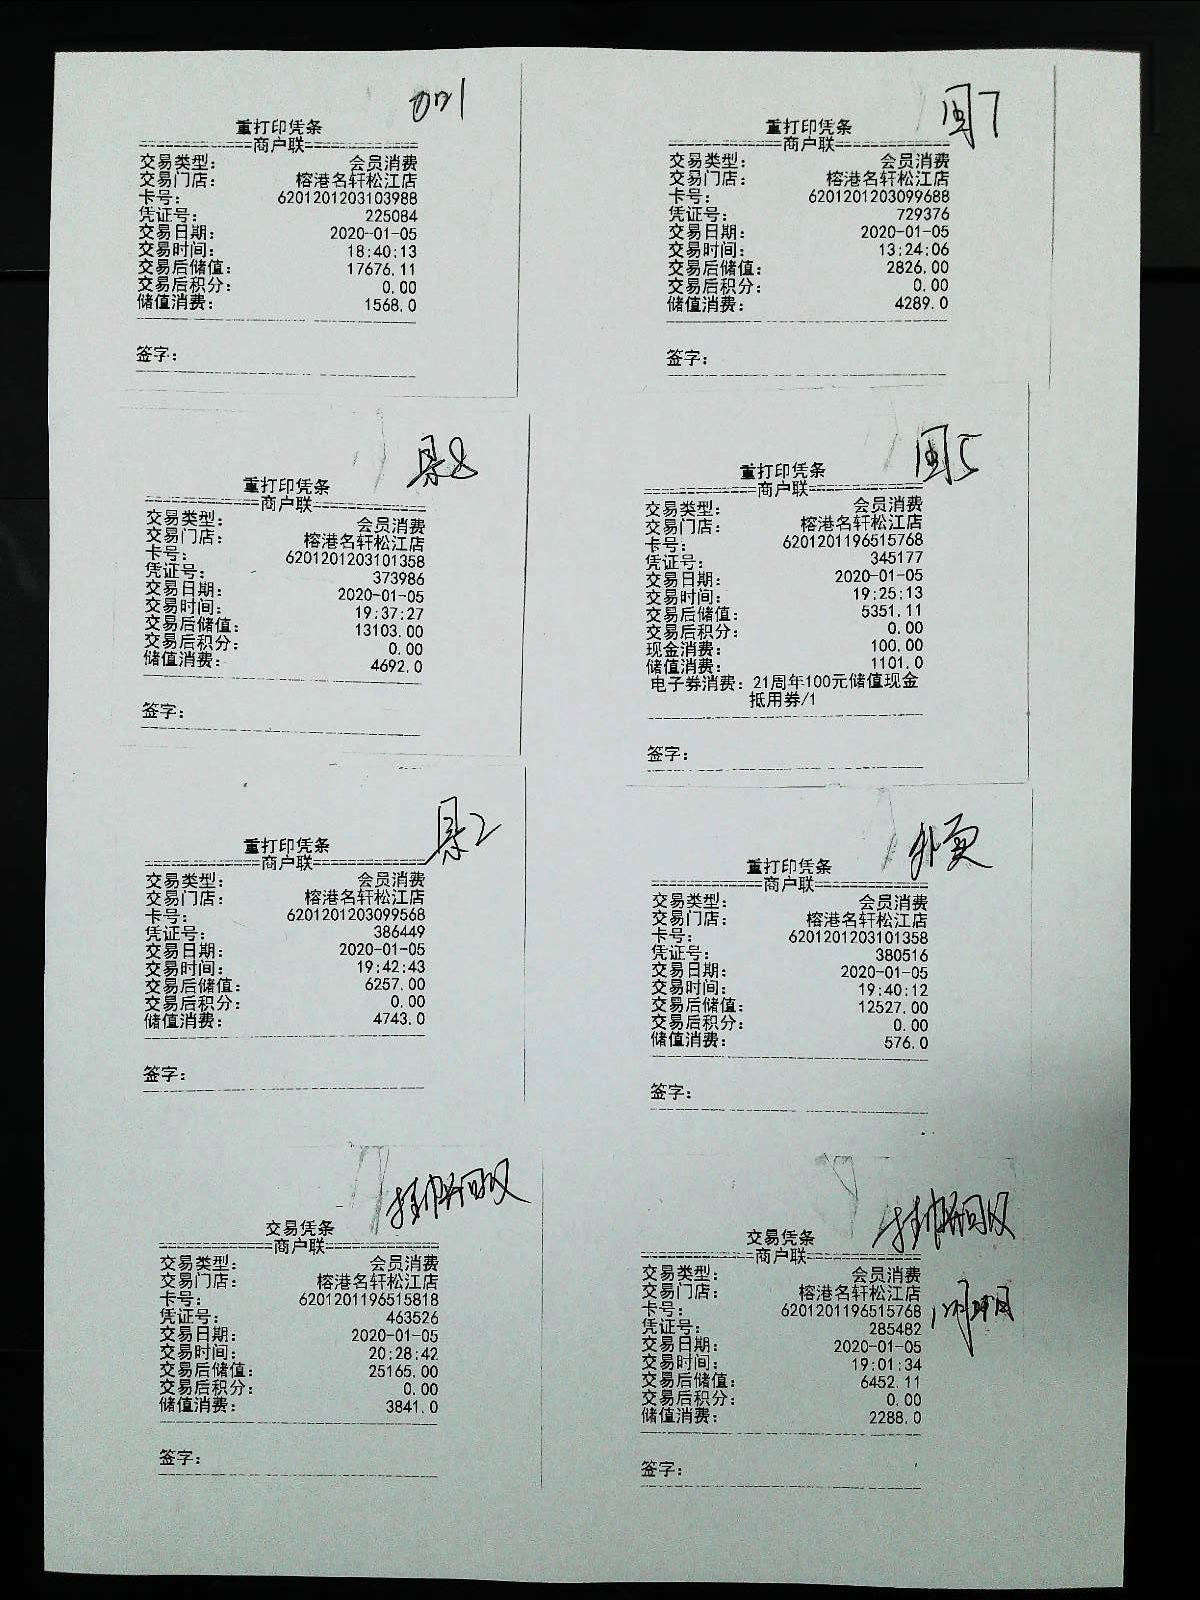 重打印凭条
商户联
交易类型： 会员消费
交易门店： 榕港名轩松江店
卡号： 6201201203103988
凭证号： 225084
交易日期： 2020-01-05
交易时间： 18:40:13
交易后储值： 17676.11
交易后积分： 0.00
储值消费： 1568.0
签字：
闽7
重打印凭条
商户联
交易类型： 会员消费
交易门店： 榕港名轩松江店
卡号： 6201201203099688
凭证号： 729376
交易日期： 2020-01-05
交易时间： 13:24:06
交易后储值： 2826.00
交易后积分： 0.00
储值消费： 4289.0
签字：
重打印凭条
商户联
交易类型： 会员消费
交易门店： 榕港名轩松江店
卡号： 6201201203101358
凭证号： 373986
交易日期： 2020-01-05
交易时间： 19:37:27
交易后储值： 13103.00
交易后积分： 0.00
储值消费： 4692.0
签字：
闽5
重打印凭条
商户联
交易类型： 会员消费
交易门店： 榕港名轩松江店
卡号： 6201201196515768
凭证号： 345177
交易日期： 2020-01-05
交易时间： 19:25:13
交易后储值： 5351.11
交易后积分： 0.00
现金消费： 100.00
储值消费： 1101.0
电子券消费：21周年100元储值现金
抵用券/1
签字：
重打印凭条
商户联
交易类型： 会员消费
交易门店： 榕港名轩松江店
卡号： 6201201203099568
凭证号： 386449
交易日期： 2020-01-05
交易时间： 19:42:43
交易后储值： 6257.00
交易后积分： 0.00
储值消费： 4743.0
签字：
外卖
重打印凭条
商户联
交易类型： 会员消费
交易门店： 榕港名轩松江店
卡号： 6201201203101358
凭证号： 380516
交易日期： 2020-01-05
交易时间： 19:40:12
交易后储值： 12527.00
交易后积分： 0.00
储值消费： 576.0
签字：
挂帐回收
交易凭条
商户联
交易类型： 会员消费
交易门店： 榕港名轩松江店
卡号： 6201201196515818
凭证号： 463526
交易日期： 2020-01-05
交易时间： 20:28:42
交易后储值： 25165.00
交易后积分： 0.00
储值消费： 3841.0
签字：
挂帐回收
交易凭条
商户联
交易类型： 会员消费
交易门店： 榕港名轩松江店
卡号： 6201201196515768
凭证号： 285482
交易日期： 2020-01-05
交易时间： 19:01:34
交易后储值： 6452.11
交易后积分： 0.00
储值消费： 2288.0
签字：